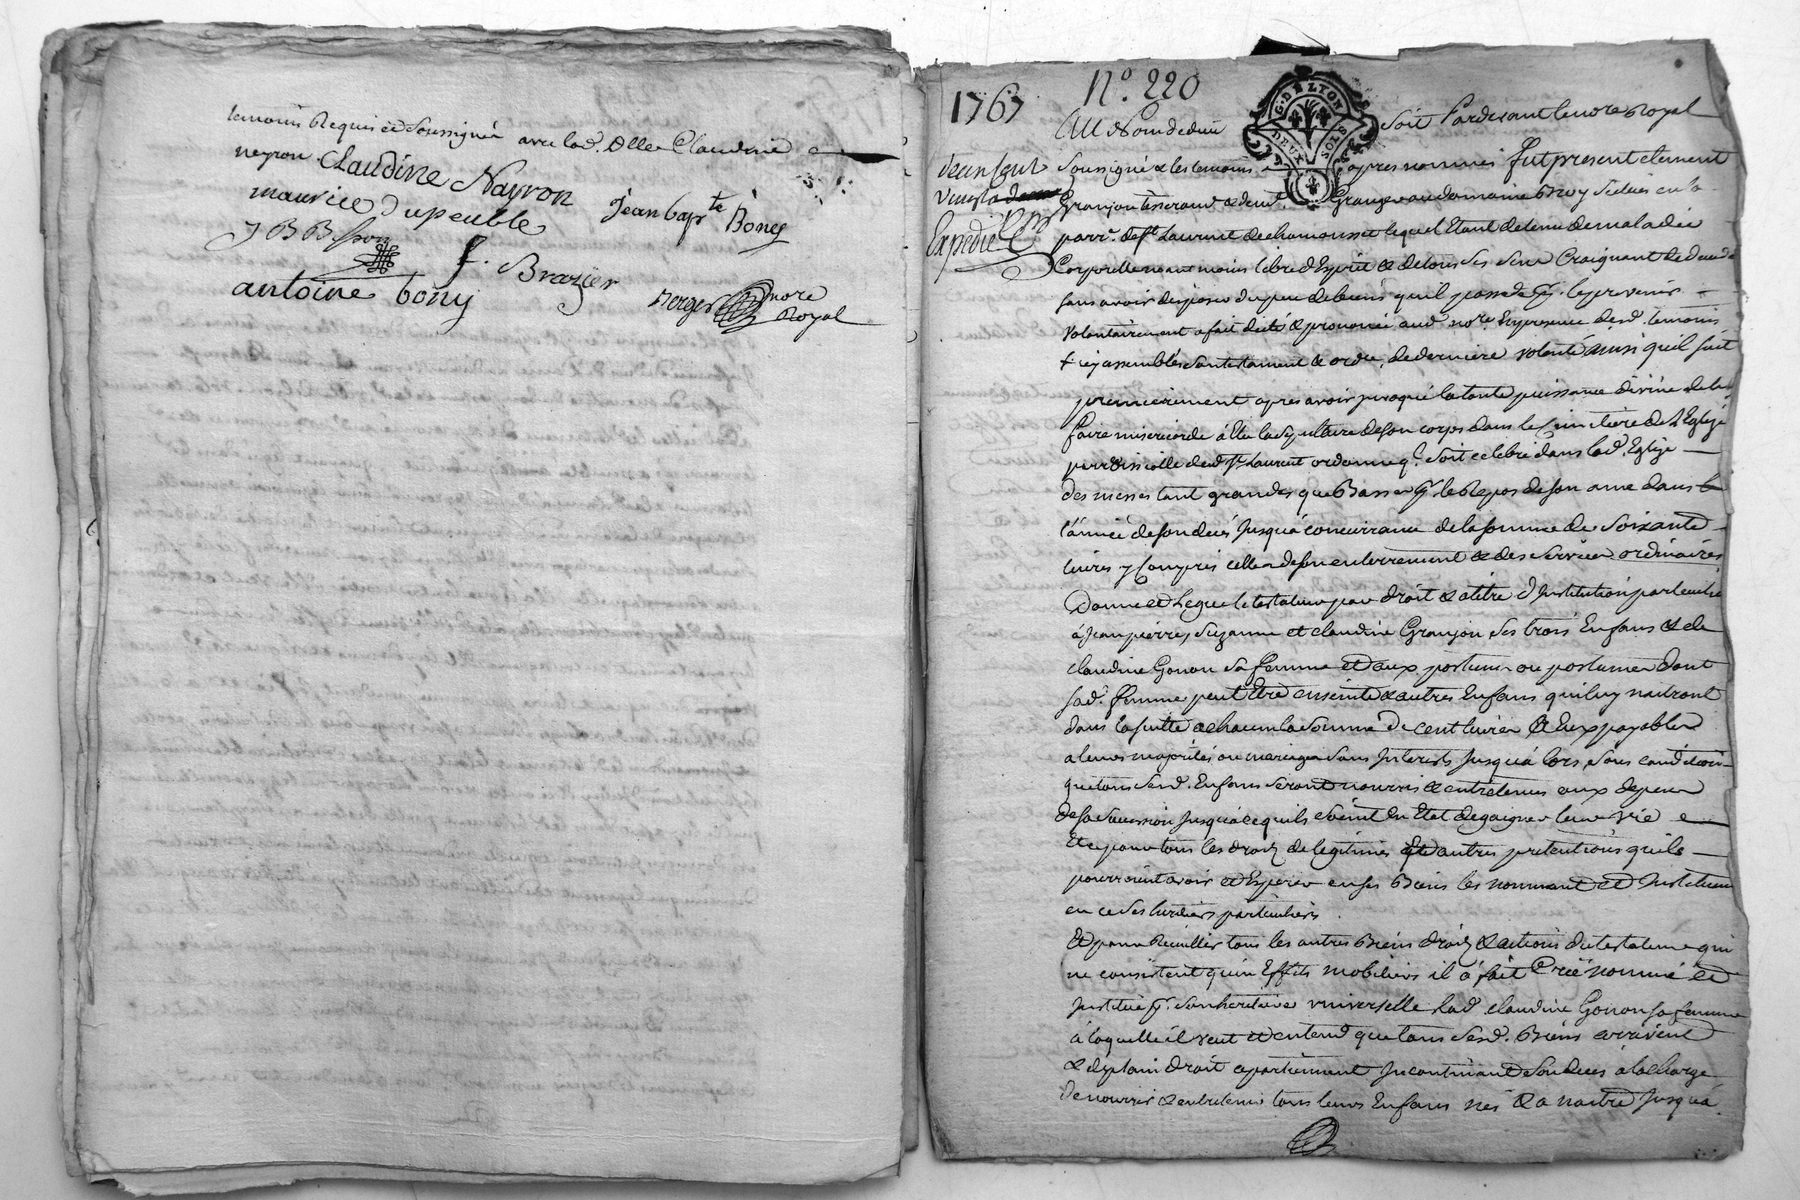 temoins Requis et Soussignés avec lad. Dlle Claudine
neyron Claudine Nayron
maurice dupeuble Jean bapte Boney
J B Bisson
f. Brazier
antoine bony
Berger nore
Royal
1767
No. 220
G. DE LYON
DEUX SOLS
Au Nom de dieu Soit Pardevant le nore Royal
Expedié
Soussigné & les temoins apres nommés fut present clement
Granjon tisserand & demt. Granger au domaine Broy Situés en la
parr. de St. Laurent de chamousset lequel Etant detenu de maladie
Corporelle neantmoins libre d'Esprit & de tous ses sens Craignant de deceder
sans avoir disposer du peu de biens quil possede pr. le prevenir
volontairement a fait dicté & prononcé aud nore. En presence desd. temoins
+ icy assemblés son testament & ordce. de derniere volonté ainsi quil suit
premierement apres avoir invoqué la toute puissance divine de luy
faire misericorde á Elu la sepulture de son corps dans le Cimitière de L'Eglise
parroissialle dud St. Laurent ordonne q. soit celebré dans lad. Eglise
des messes tant grandes que Basses pr. le Repos de son ame dans
l'année de son decés Jusqu'á concurrance de la somme de Soixante
livres y Compris celles de son enterrement & des services ordinaires
Donne et Legue le testateur par droit & a titre d'Institution particuliere
á Jean pierre, Suzanne et claudine Granjon ses trois Enfans & de
claudine Gonon sa femme et aux postume ou postumes dont
sad. femme peut Etre enceinte & autres Enfans qui luy naitront
dans la suitte a chacun la somme de cent livres a Eux payables
a leurs majorités ou mariage sans Interests Jusqu'á lors, sous condition
que tous sesd. Enfans seront nourris & entretenus aux depens
de sa succession Jusqu'á ce quils soient En Etat de gaigner leur vie
Et ce pour tous les droits de legitimes Et autres pretentions quils
pourroient avoir et Esperer en ses Biens les nommant et Instituant
en ce ses heritiers particuliers
Et pour Recueillir tous les autres Biens droits & actions du testateur qui
ne consistent qu'en Effets mobiliers il á fait Créé nommé et
Institué pr. son heritiere universelle lad. claudine Gonon sa femme
á laquelle il veut et entend que tous sesd. Biens arrivent
& de plain droit apartiennent Incontinant son deces á la charge
de nourrir & entretenir tous leurs Enfans nés & a naitre Jusquá